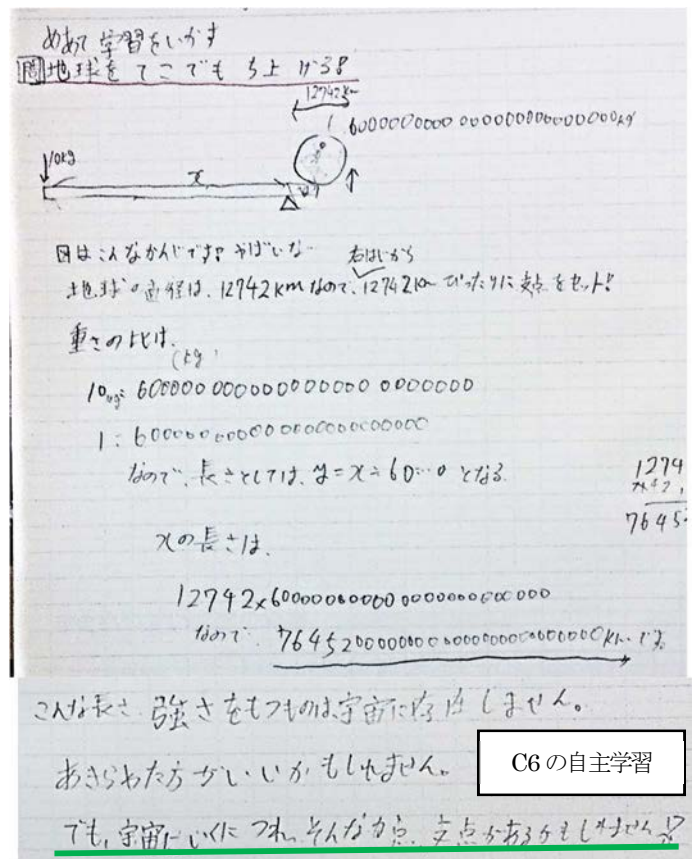 めあて 学習をいかす
問 地球をてこでもち上げる!
12742km
1 6000000000 000000000000000kg
10kg
x
図はこんなかんじです? やばいな…
右はじから
地球の直径は、12742kmなので、12742kmぴったりに支点をセット!
重さの比は、
(kg)
10kg: 600000 000000000000 0000000
1 : 600000000000000000000000
なので、長さとしては、y=x÷60…0 となる
1274
7645
xの長さは、
12742×6000000000000000000000000
なので、76452000000000000000000000000km です。
こんな長さ、強さをもつものは宇宙に存在しません。
あきらめた方がいいかもしれません。
C6の自主学習
でも、宇宙にいくにつれ、そんな力点、支点があるかもしれません!?